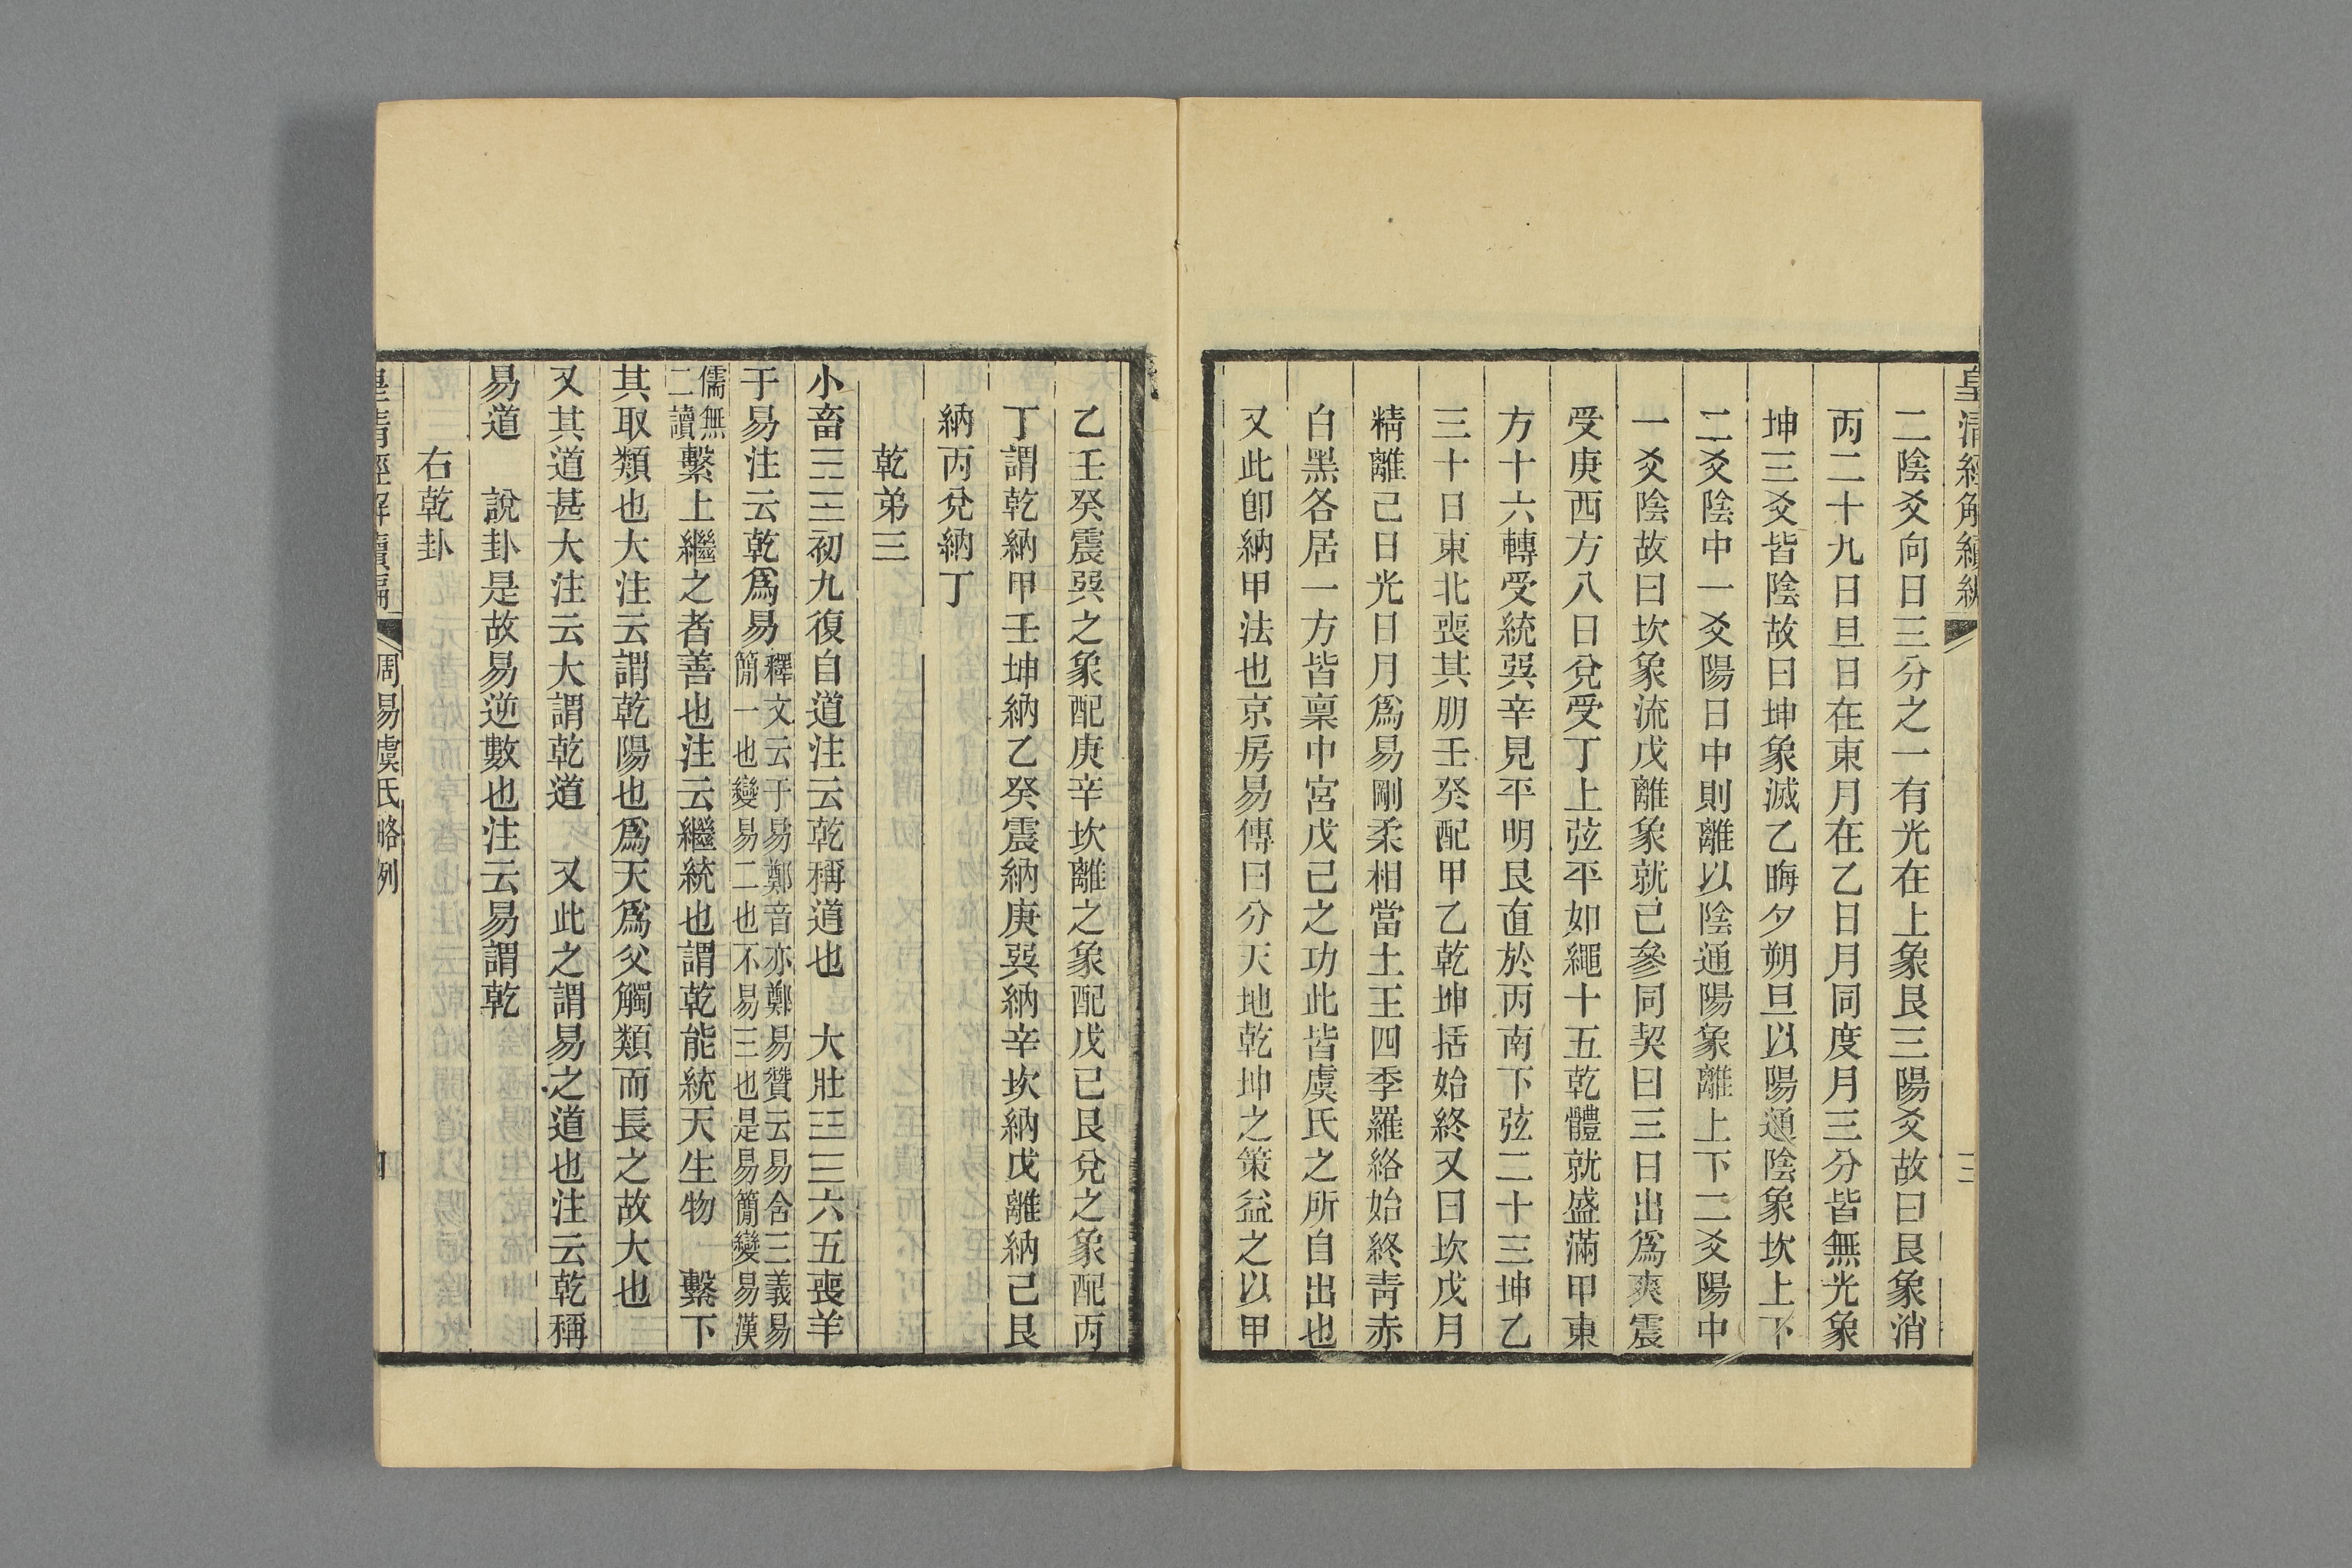 皇清經解續編
三
二陰爻向日三分之一有光在上象艮三陽爻故曰艮象消
丙二十九日旦日在東月在乙日月同度月三分皆無光象
坤三爻皆陰故曰坤象滅乙晦夕朔旦以陽通陰象坎上下
二爻陰中一爻陽日中則離以陰通陽象離上下二爻陽中
一爻陰故曰坎象流戊離象就己參同契曰三日出爲爽震
受庚西方八日兌受丁上弦平如繩十五乾體就盛滿甲東
方十六轉受統巽辛見平明艮直於丙南下弦二十三坤乙
三十日東北喪其朋壬癸配甲乙乾坤括始終又曰坎戊月
精離己日光日月爲易剛柔相當土王四季羅絡始終青赤
白黑各居一方皆稟中宮戊己之功此皆虞氏之所自出也
又此卽納甲法也京房易傳曰分天地乾坤之策益之以甲
乙壬癸震巽之象配庚辛坎離之象配戊己艮兌之象配丙
丁謂乾納甲壬坤納乙癸震納庚巽納辛坎納戊離納己艮
納丙兌納丁
乾弟三
小畜☰☴初九復自道注云乾稱道也　大壯☰☳六五喪羊
于易注云乾爲易釋文云于易鄭音亦鄭易贊云易含三義易
簡一也變易二也不易三也是易簡變易漢
儒無
二讀繫上繼之者善也注云繼統也謂乾能統天生物　繫下
其取類也大注云謂乾陽也爲天爲父觸類而長之故大也
又其道甚大注云大謂乾道　又此之謂易之道也注云乾稱
易道　說卦是故易逆數也注云易謂乾
右乾卦
皇清經解續編
周易虞氏略例
四